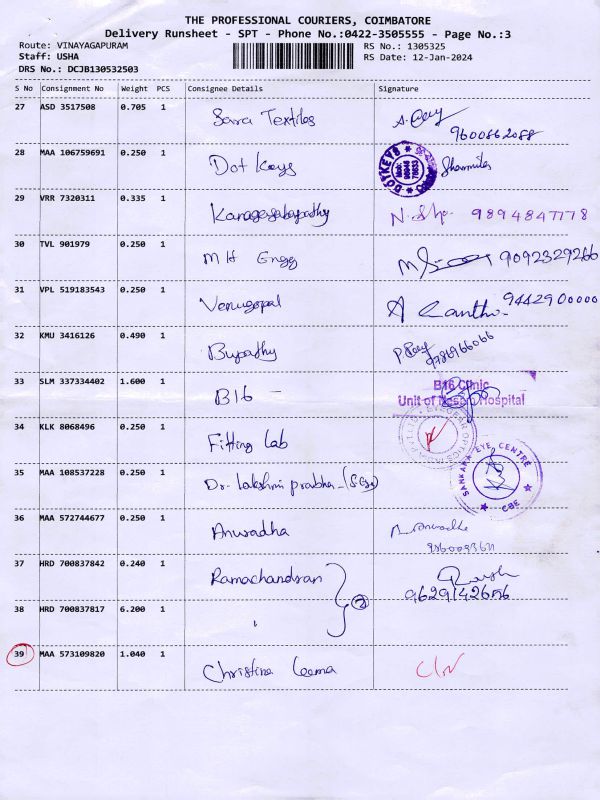 THE PROFESSIONAL COURIERS, COIMBATORE
Delivery Runsheet - SPT - Phone No.:0422-3505555 - Page No.:3
Route: VINAYAGAPURAM RS No.: 1305325
Staff: USHA RS Date: 12-Jan-2024
DRS No.: DCJB130532503
S No Consignment No Weight PCS Consignee Details Signature
27 ASD 3517508 0.705 1 Sara Textiles
9600862088
28 MAA 106759691 0.250 1 Dot Keys DOTKEYS Sharmila
29 VRR 7320311 0.335 1 9894847778
30 TVL 901979 0.250 1 MH Engg 9092329266
31 VPL 519183543 0.250 1 Venugopal 9442900000
32 KMU 3416126 0.490 1 Bupathy
33 SLM 337334402 1.600 1 B16
B16 Clinic
Hospital
34 KLK 8068496 0.250 1 Fitting Lab
35 MAA 108537228 0.250 1 Dr. Lakshmi prabha SANKARA EYE CENTRE CBE
36 MAA 572744677 0.250 1 Anuradha Anuradha
37 HRD 700837842 0.240 1 Ramachandran
2
38 HRD 700837817 6.200 1
39 MAA 573109820 1.040 1 Christina Leema